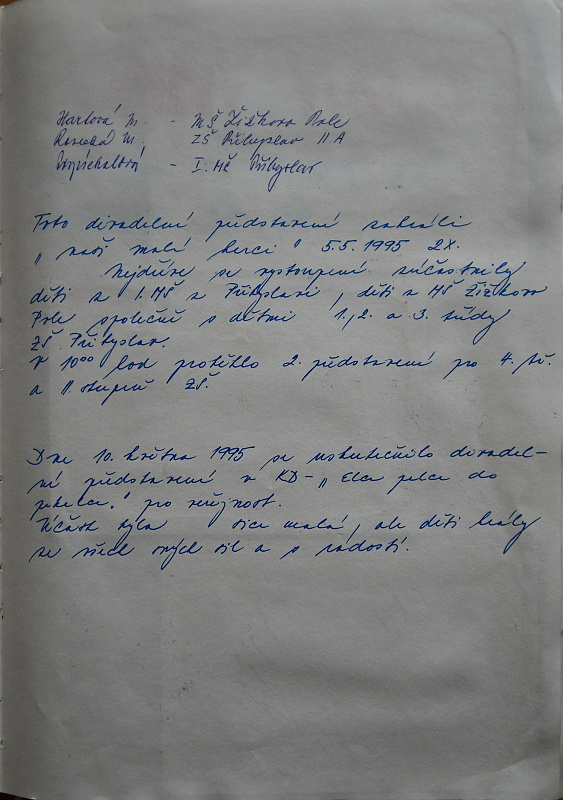 Hartová M. - MŠ Žižkovo Pole
M. - ZŠ Přibyslav II A
- I. MŠ Přibyslav
Toto divadelní představení zahráli
„naši malí herci" 5.5.1995 2x.
Nejdříve se vystoupení zúčastnily
děti z I. MŠ z Přibyslavi, děti z MŠ Žižkovo
Pole společně s dětmi 1., 2. a 3. třídy
ZŠ Přibyslav.
V 10⁰⁰ hod proběhlo 2. představení pro 4. tř.
a II. stupeň ZŠ.
Dne 10. května 1995 se uskutečnilo divadel-
ní představení v KD - „Elce pelce do
pekelce." pro veřejnost.
Účast byla sice malá, ale děti hrály
ze všech svých sil a s radostí.